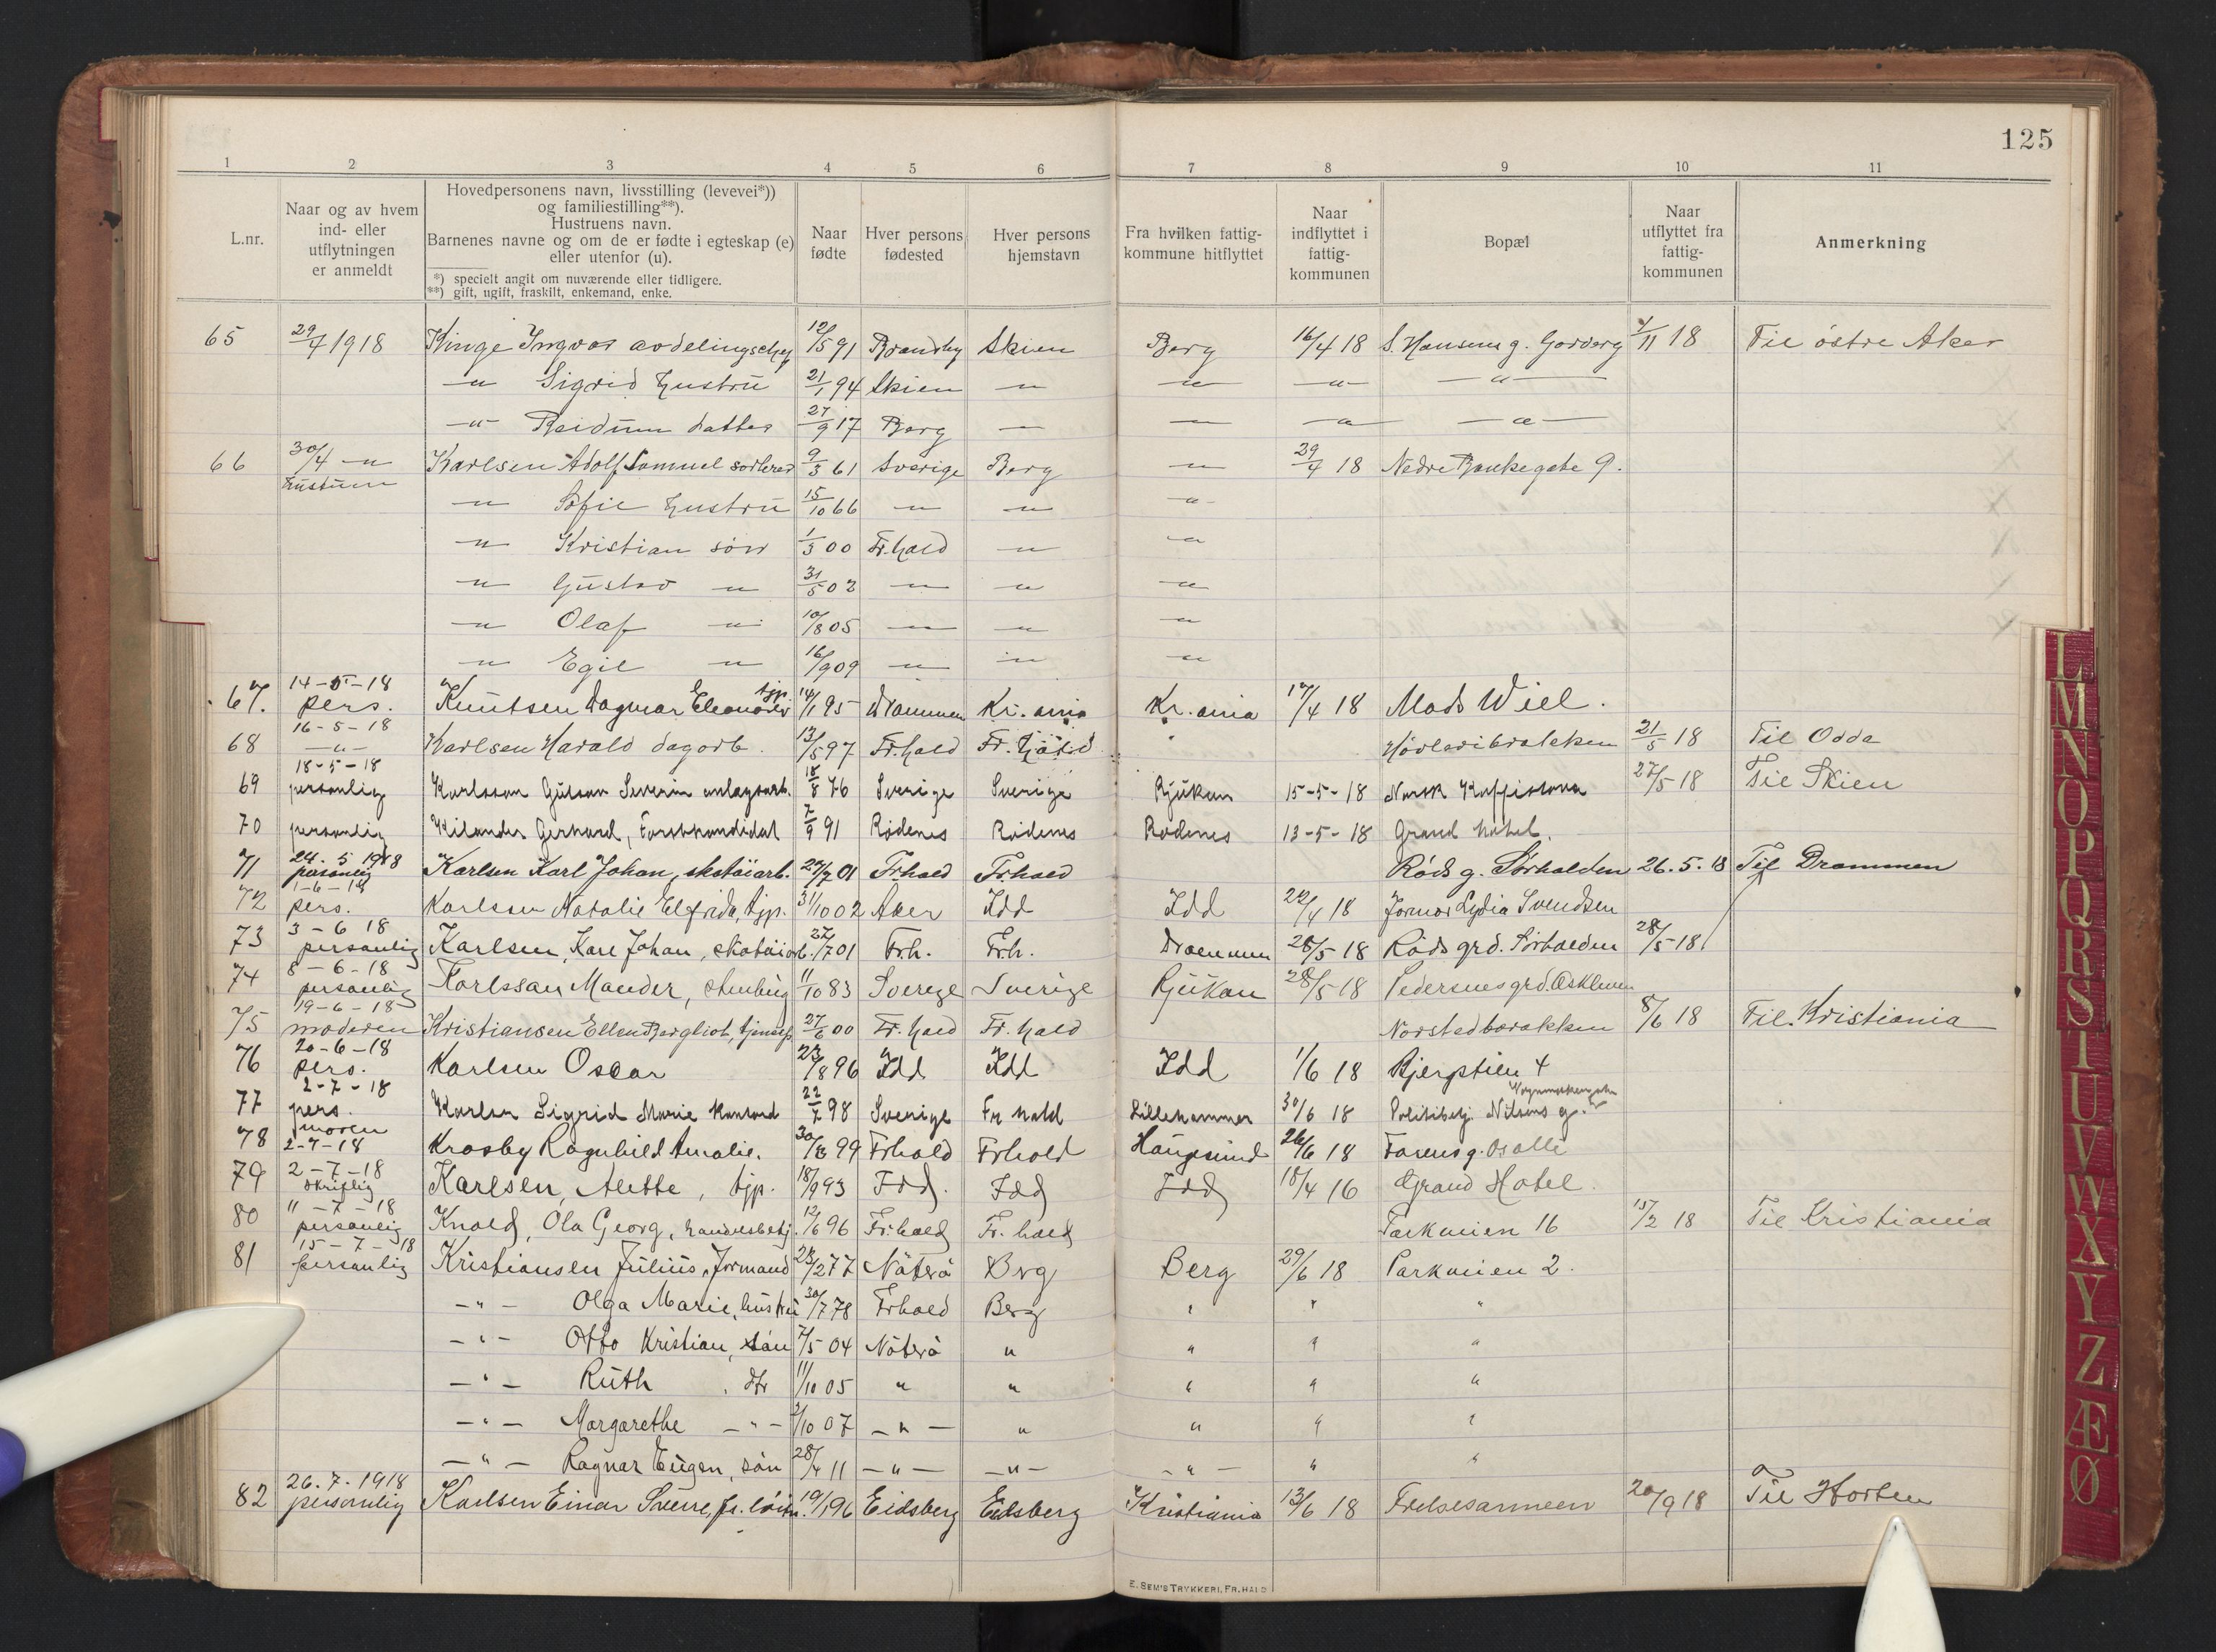 125
1 2 3 4 5 6 7 8 9 10 11
L.nr.
Naar og av hvem
ind- eller
utflytningen
er anmeldt
Hovedpersonens navn, livsstilling (levevei*))
og familiestilling**).
Hustruens navn.
Barnenes navne og om de er fødte i egteskap (e)
eller utenfor (u).
*) specielt angit om nuværende eller tidligere.
**) gift, ugift, fraskilt, enkemand, enke.
Naar
fødte
Hver persons
fødested
Hver persons
hjemstavn
Fra hvilken fattig-
kommune hitflyttet
Naar
indflyttet i
fattig-
kommunen
Bopæl
Naar
utflyttet fra
fattig-
kommunen
Anmerkning
65 29/7 1918 Kinge Ingvar avdelingschef 12/5 91 Skien Berg 16/4 18 S. Hansens g. 1/11 18 Til östre Aker
—"— Sigrid hustru 21/1 94 Skien —"— —"— —"— —"—
—"— Reidunn datter 27/9 17 Berg — — —"— —"—
66 30/4 —"— Karlsen Adolf Samuel 9/3 61 Sverige Berg —"— 29/4 18 Nedre Bankegate 9.
hustruen
—"— Sofie hustru 15/10 66 —"— —"— —"—
—"— Kristian sönn 1/3 00 Fr.hald —"— —"—
—"— Gustav —"— 31/5 02 —"— —"— —"—
—"— Olaf —"— 10/8 05 —"— —"— —"—
—"— Egil —"— 16/9 09 —"— —"— —"—
67. 14-5-18 pers. Knutsen Dagmar Eleonore tjp. 14/1 95 Drammen Kr.ania Kr.ania 17/4 18 Mads Wiel.
68 16-5-18 —"— Karlsen Harald dagarb. 13/5 97 Fr.hald Fr.hald 21/5 18 Til Odda
69 18-5-18 personlig Karlsson Severin anlagsarb. 18/8 76 Sverige Sverige Rjukan 15-5-18 Norsk Kaffistova 27/5 18 Til Skien
70 personlig Kilander Gerhard, Forstkandidat 7/9 91 Rödenes Rödenes Rödenes 13-5-18 Grand Hotel.
71 24.5 1918 personlig Karlsen Karl Johan, skotöiarb. 27/7 01 Fr.hald Fr.hald Röds g. Sörhalden 26.5.18 Til Drammen
72 1-6-18 pers. Karlsen Natalie Elfrida, tjp. 31/10 02 Aker Idd Idd 22/4 18 Jormor Lydia Svendsen
73 3-6 18 personlig Karlsen, Karl Johan, skotöiarb. 27/7 01 Fr.h. Fr.h. Drammen 28/5 18 Röds grd. Sörhalden 28/5 18
74 8-6-18 personlig Karlsson Mander, 11/10 83 Sverige Sverige Rjukan 28/5 18 Pedersens grd.
75 19-6-18 moderen Kristiansen Ellen Bergliot, 27/6 00 Fr.hald Fr.hald Norstedbarakken 8/6 18 Til Kristiania
76 20-6-18 pers. Karlsen Oscar 23/8 96 Idd Idd Idd 1/6 18 Bjergstien 4
77 2-7-18 pers. Karlsen Sigrid Marie 22/7 98 Sverige Fr hald Lillehammer 30/6 18 Politibetj. Nilsens g.
78 moren 2-7-18 Krosby Ragnhild Amalie. 30/8 99 Frhald Frhald Haugesund 26/6 18
79 2-7-18 skriftlig Karlsen, Alette, tjp. 18/9 93 Idd. Idd Idd 18/4 16 Grand Hotel.
80 11-7-18 personlig Knold, Ola Georg, handelsbetj. 12/6 96 Fr.hald Fr.hald Parkveien 16 15/2 18 Til Kristiania
81 15-7-18 personlig Kristiansen Julius, Formand 23/2 77 Nöterö Berg Berg 29/6 18 Parkveien 2.
—"— Olga Marie, hustru 30/7 78 Frhald Berg " " "
—"— Otto Kristian, sön 7/5 04 Nöterö " " " "
—"— Ruth, dtr 11/10 05 " " " " "
—"— Margarethe —"— 2/10 07 —"— " " " "
—"— Ragnar Eugen, sön 28/4 11 —"— —"— —"— " "
82 26.7.1918 personlig Karlsen Einar Sverre, 19/1 96 Eidsberg Eidsberg Kristiania 13/6 18 Frelsesarmeen 20/9 18 Til Horten
E. SEM'S TRYKKERI, FR.HALD
L
M
N
O
P
Q
R
S
T
U
V
W
X
Y
Z
Æ
Ø